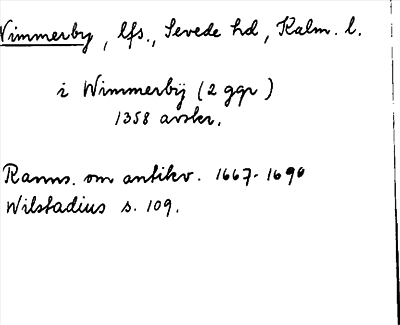 Vimmerby, lfs., Sevede hd, Kalm. l.
i Wimmerbÿ (2 ggr)
1358 avskr.
Ranns. om antikv. 1667-1690
Wilstadius s. 109.